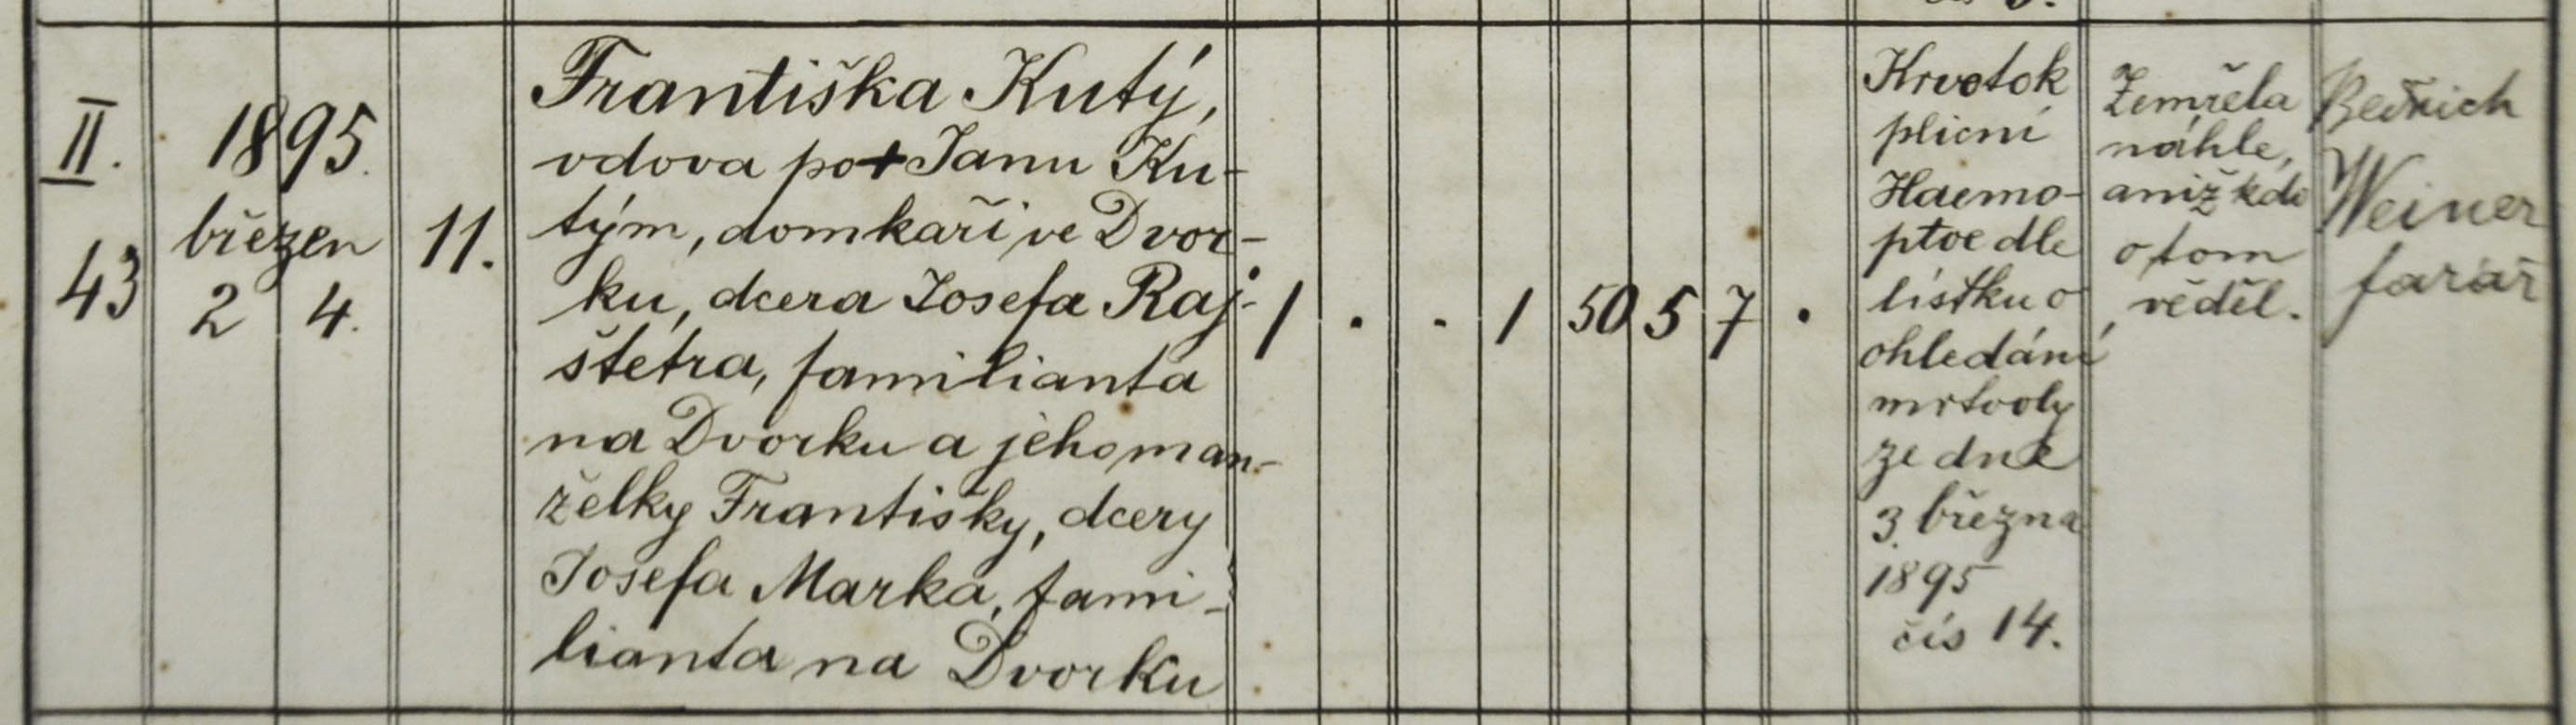 II.
43
1895.
březen
2 4.
11.
Františka Kutý,
vdova po † Janu Ku-
tým, domkáři ve Dvor-
ku, dcera Josefa Raj-
štetra, familianta
na Dvorku a jeho man-
želky Františky, dcery
Josefa Marka, fami-
lianta na Dvorku
1 . . 1 50 5 7 .
Krvotok
plicní
Haemo-
ptoe dle
lístku o
ohledání
mrtvoly
ze dne
3. března
1895
čís 14.
Zemřela
náhle,
aniž kdo
o tom
věděl.
Bedřich
Weiner
farář